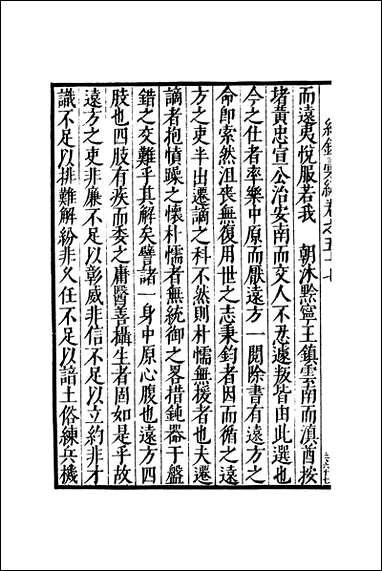 而遠夷悅服若我　朝沐黔寧王鎮雲南而滇酋按
堵黃忠宣公治安南而交人不忍遽叛皆由此選也
今之仕者率樂中原而厭遠方一聞除書有遠方之
命即索然沮喪無復用世之志秉鈞者因而循之遠
方之吏半出遷謫之科不然則朴懦無援者也夫遷
謫者抱憤躁之懷朴懦者無統御之畧措鈍器于盤
錯之交難乎其解矣譬諸一身中原心腹也遠方四
肢也四肢有疾而委之庸醫善攝生者固如是乎故
遠方之吏非廉不足以彰威非信不足以立約非才
識不足以排難解紛非久任不足以諳土俗練兵機